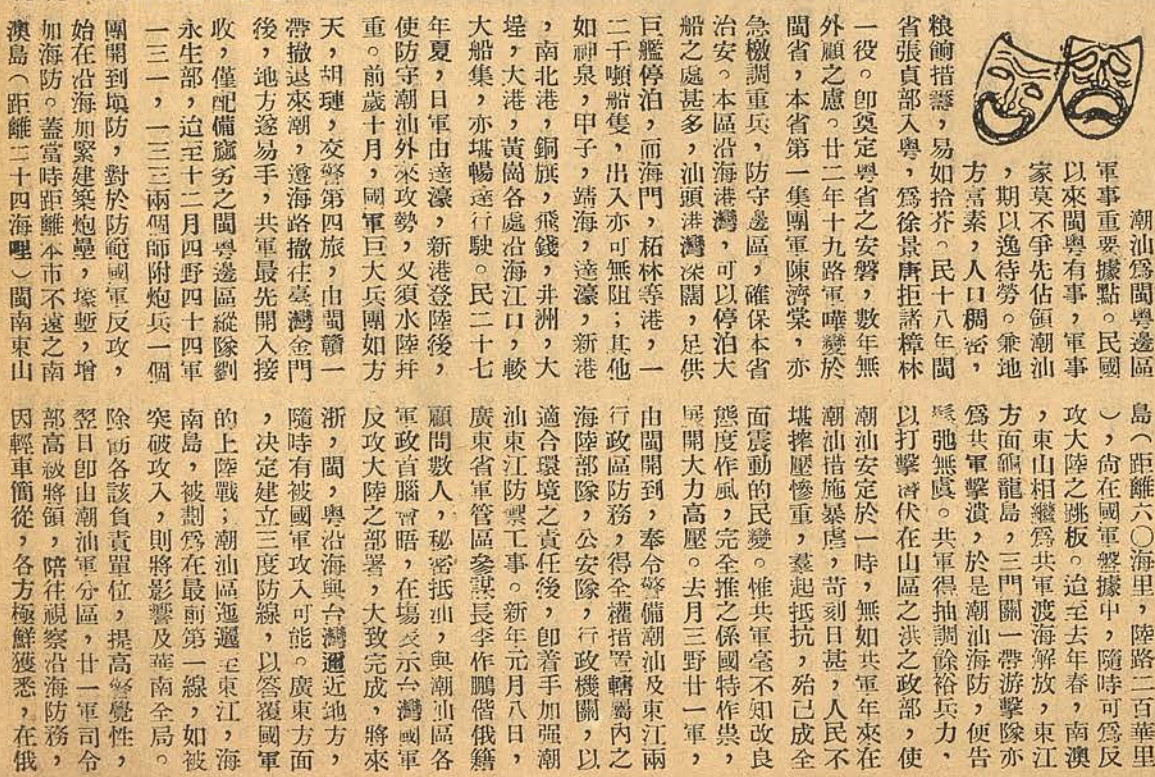 潮汕爲閩粤邊區
軍事重要據點。民國
以來閩粤有事，軍事
家莫不爭先佔領潮汕
，期以逸待勞。兼地
方富素，人口稠密，
粮餉措籌，易如拾芥。民十八年閩
省張貞部入粤，爲徐景唐拒諸樟林
一役。卽奠定粤省之安磐，數年無
外顧之慮。廿二年十九路軍嘩變於
閩省，本省第一集團軍陳濟棠，亦
急檄調重兵，防守邊區，確保本省
治安。本區沿海港灣，可以停泊大
船之處甚多，汕頭港灣深闊，足供
巨艦停泊，而海門，柘林等港，一
二千噸船隻，出入亦可無阻；其他
如神泉，甲子，靖海，達濠，新港
，南北港，銅旗，飛錢，井洲，大
埕，大港，黃崗各處沿海江口，較
大船集，亦堪暢達行駛。民二十七
年夏，日軍由達濠，新港登陸後，
使防守潮汕外來攻勢，又須水陸幷
重。前歲十月，國軍巨大兵團如方
天，胡璉，交警第四旅，由閩贛一
帶撤退來潮，遵海路撤往臺灣金門
後，地方遂易手，共軍最先開入接
收，僅配備窳劣之閩粤邊區縱隊劉
永生部，迨至十二月四野四十四軍
一三一，一三三兩個師附炮兵一個
團開到塡防，對於防範國軍反攻，
始在沿海加緊建築炮壘，壕塹，增
加海防。蓋當時距離本市不遠之南
澳島（距離二十四海哩）閩南東山
島（距離六〇海里，陸路二百華里
），尙在國軍盤據中，隨時可爲反
攻大陸之跳板。迨至去年春，南澳
，東山相繼爲共軍渡海解放，東江
方面龜龍島，三門關一帶游擊隊亦
爲共軍擊潰，於是潮汕海防，便告
鬆弛無虞。共軍得抽調餘裕兵力，
以打擊潛伏在山區之洪之政部，使
潮汕安定於一時，無如共軍年來在
潮汕措施暴虐，苛刻日甚，人民不
堪搾壓慘重，羣起抵抗，殆已成全
面震動的民變。惟共軍毫不知改良
態度作風，完全推之係國特作祟，
展開大力高壓。去月三野廿一軍，
由閩開到，奉令警備潮汕及東江兩
行政區防務，得全權措置轄屬內之
海陸部隊，公安隊，行政機關，以
適合環境之責任後，卽着手加强潮
汕東江防禦工事。新年元月八日，
廣東省軍管區參謀長李作鵬偕俄籍
顧問數人，秘密抵汕，與潮汕區各
軍政首腦會晤，在塲表示台灣國軍
反攻大陸之部署，大致完成，將來
浙，閩，粤沿海與台灣邇近地方，
隨時有被國軍攻入可能。廣東方面
，決定建立三度防線，以答覆國軍
的上陸戰；潮汕區迤邐至東江，海
南島，被劃爲在最前第一線，如被
突破攻入，則將影響及華南全局。
除飭各該負責單位，提高警覺性，
翌日卽由潮汕軍分區，廿一軍司令
部高級將領，陪往視察沿海防務，
因輕車簡從，各方極鮮獲悉，在俄